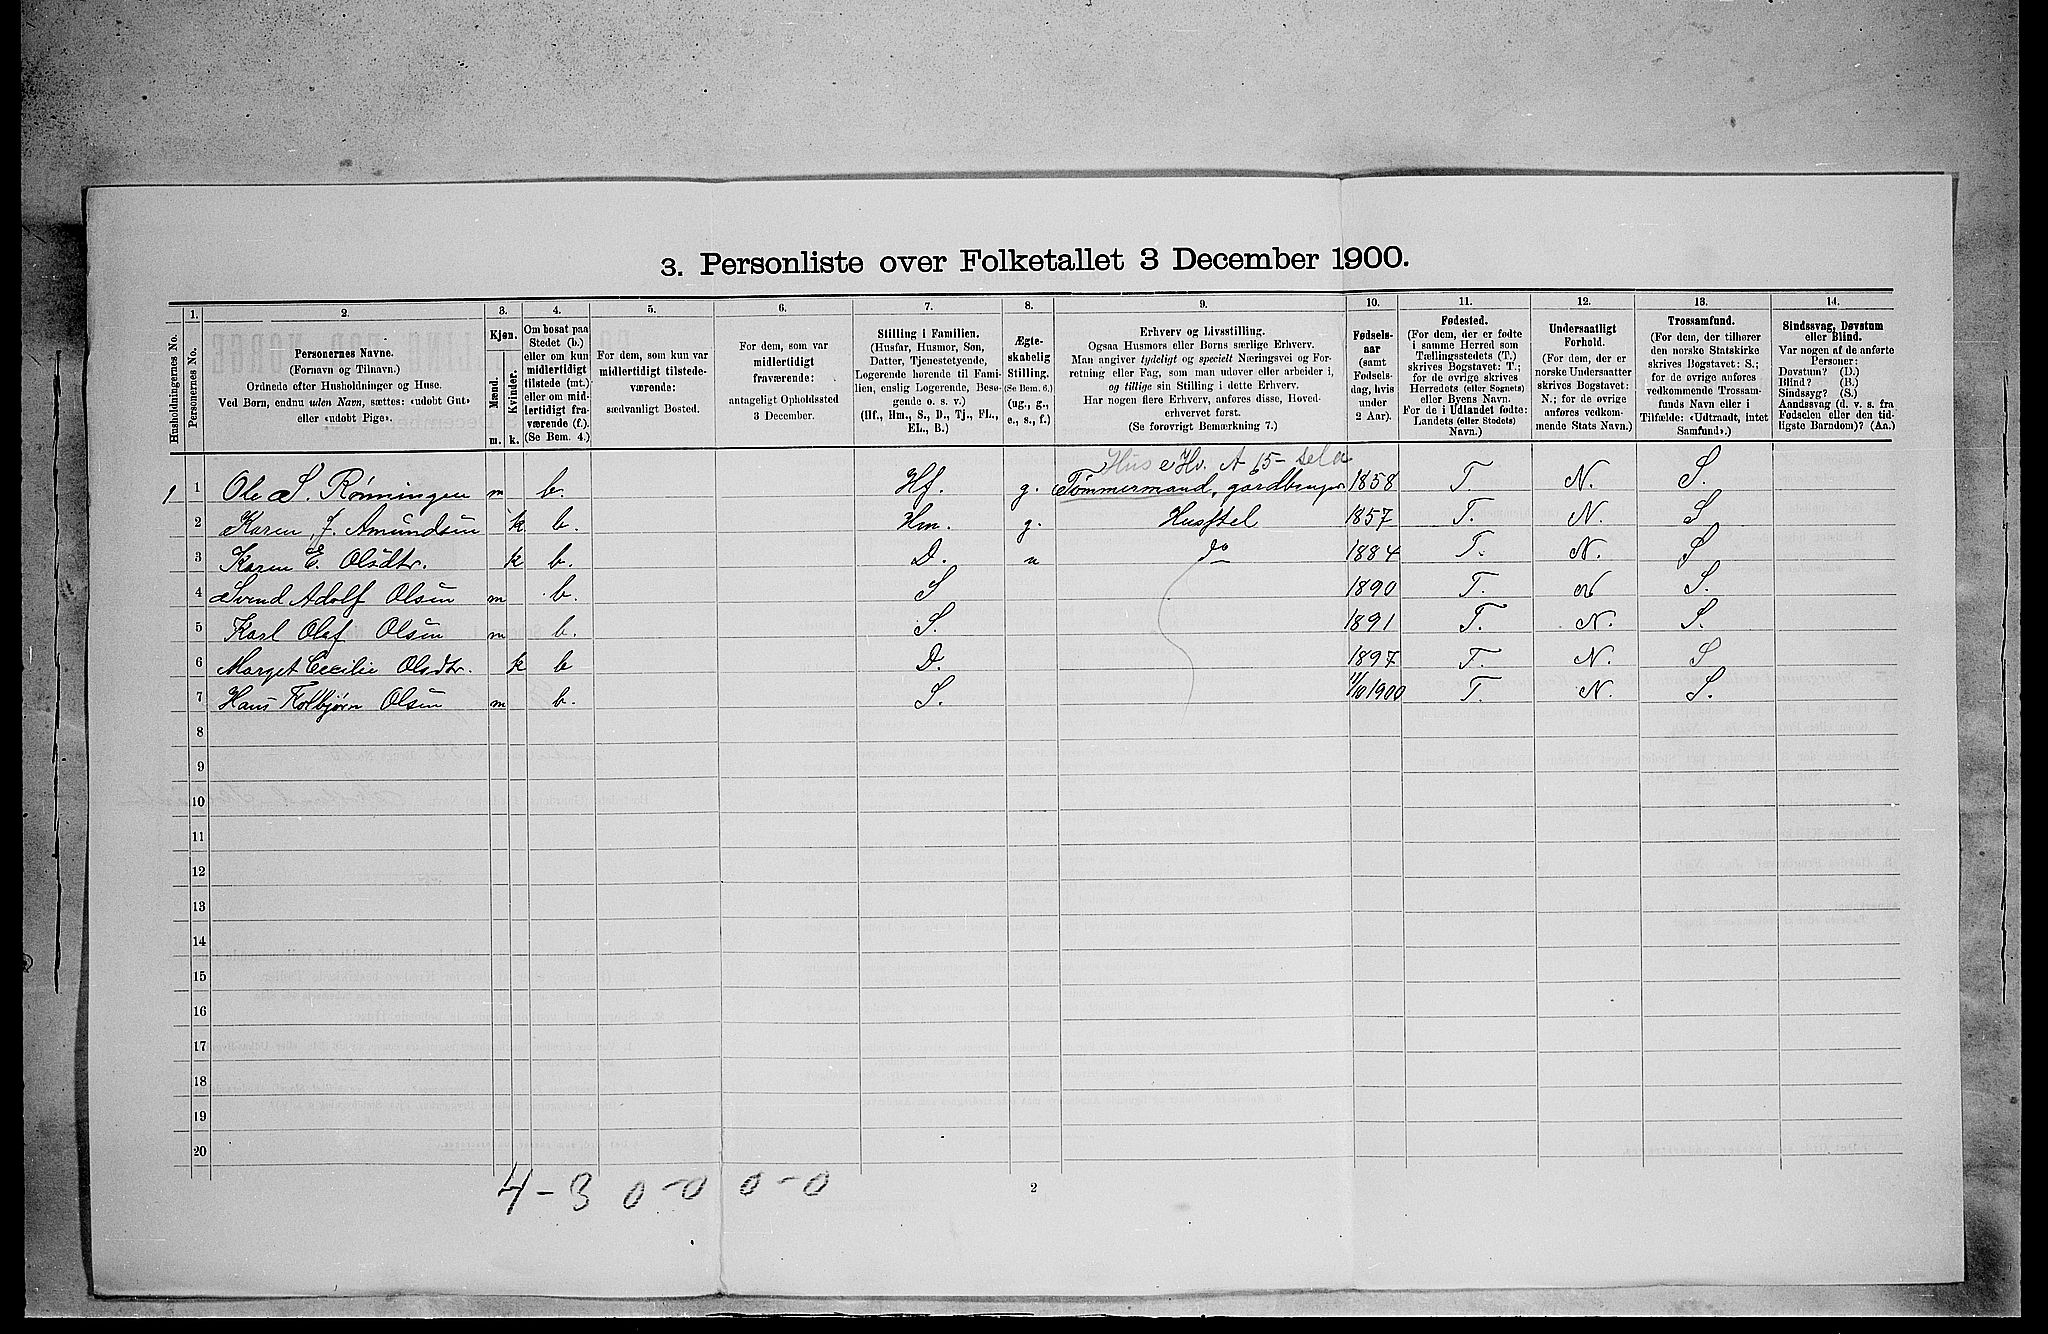 3. Personliste over Folketallet 3 December 1900.
Husholdningernes No.
1.
Personernes No.
2.
Personernes Navne.
(Fornavn og Tilnavn.)
Ordnede efter Husholdninger og Huse.
Ved Børn, endnu uden Navn, sættes: «udobt Gut»
eller «udobt Pige».
3.
Kjøn.
Mænd.
Kvinder.
m. k.
4.
Om bosat paa
Stedet (b.)
eller om kun
midlertidigt
tilstede (mt.)
eller om mid-
lertidigt fra-
værende (f.).
(Se Bem. 4.)
5.
For dem, som kun var
midlertidigt tilstede-
værende:
sædvanligt Bosted.
6.
For dem, som var
midlertidigt
fraværende:
antageligt Opholdssted
3 December.
7.
Stilling i Familien.
(Husfar, Husmor, Søn,
Datter, Tjenestetyende,
Logerende hørende til Fami-
lien, enslig Logerende, Besø-
gende o. s. v.)
(Hf., Hm., S., D., Tj., FL.,
EL., B.)
8.
Ægte-
skabelig
Stilling.
(Se Bem. 6.)
(ug., g.,
e., s., f.)
9.
Erhverv og Livsstilling.
Ogsaa Husmors eller Børns særlige Erhverv.
Man angiver tydeligt og specielt Næringsvei og For-
retning eller Fag, som man udøver eller arbeider i,
og tillige sin Stilling i dette Erhverv.
Har nogen flere Erhverv, anføres disse, Hoved-
erhvervet først.
(Se forøvrigt Bemærkning 7.)
10.
Fødsels-
aar
(samt
Fødsels-
dag, hvis
under
2 Aar).
11.
Fødested.
(For dem, der er fødte
i samme Herred som
Tællingsstedets (T.)
skrives Bogstavet: T.;
for de øvrige skrives
Herredets (eller Sognets)
eller Byens Navn.
For de i Udlandet fødte:
Landets (eller Stedets)
Navn.)
12.
Undersaatligt
Forhold.
(For dem, der er
norske Undersaatter
skrives Bogstavet:
N.; for de øvrige
anføres vedkom-
mende Stats Navn.)
13.
Trossamfund.
(For dem, der tilhører
den norske Statskirke
skrives Bogstavet: S.;
for de øvrige anføres
vedkommende Trossam-
funds Navn eller i
Tilfælde: «Udtraadt, intet
Samfund».)
14.
Sindssvag, Døvstum
eller Blind.
Var nogen af de anførte
Personer:
Døvstum? (D.)
Blind? (B.)
Sindssyg? (S.)
Aandssvag (d. v. s. fra
Fødselen eller den tid-
ligste Barndom)? (Aa.)
1 1 Ole S. Rønningen m b. Hf. g. Tømmermand, gardbruger 1858 T. N. S.
2 Karen J. Amundsen k b. Hm. g. Husstel 1857 T. N. S
3 Karen E. Olsdtr. k b. D. u do 1884 T. N. S
4 Svend Adolf Olsen m b. S 1890 T. N S.
5 Karl Olaf Olsen m b. S. 1891 T. N. S.
6 Marget Cecilie Olsdtr. k b D. 1897 T. N. S
7 Hans Kolbjørn Olsen m b. S. 11/10 1900 T. N. S.
8
9
10
11
12
13
14
15
16
17
18
19
20
4 - 3 0 - 0 0 - 0
2